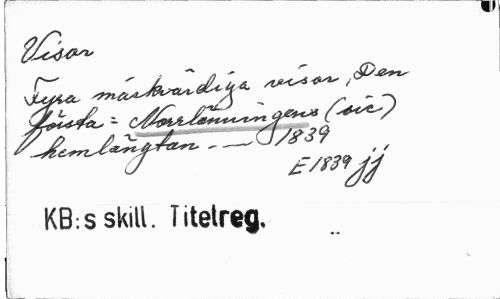 Visor
Fyra märkvärdiga visor, Den
första = Norrlänningens (sic)
hemlängtan. — 1839
E 1839 jj
KB:s skill. Titelreg.